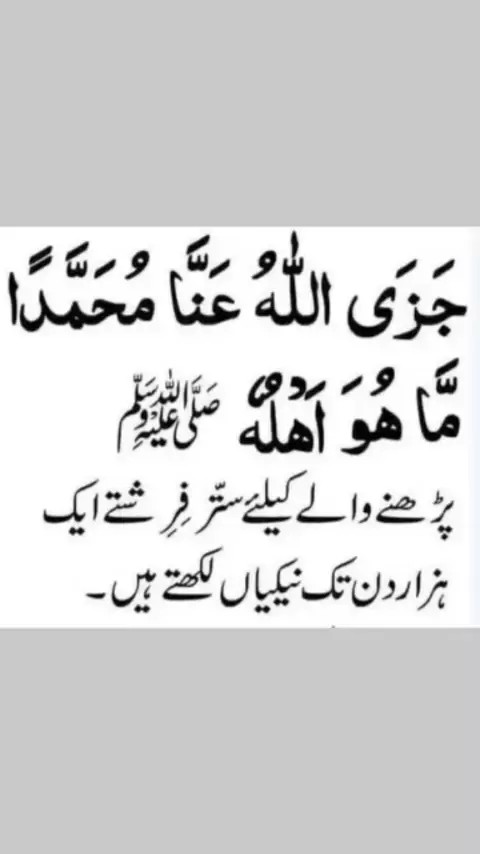 جَزَی اللّٰهُ عَنَّا مُحَمَّدًا
مَّا هُوَ اَهْلُهٗ ﷺ
پڑھنے والے کیلئے ستّر فِرِشتے ایک
ہزار دن تک نیکیاں لکھتے ہیں۔